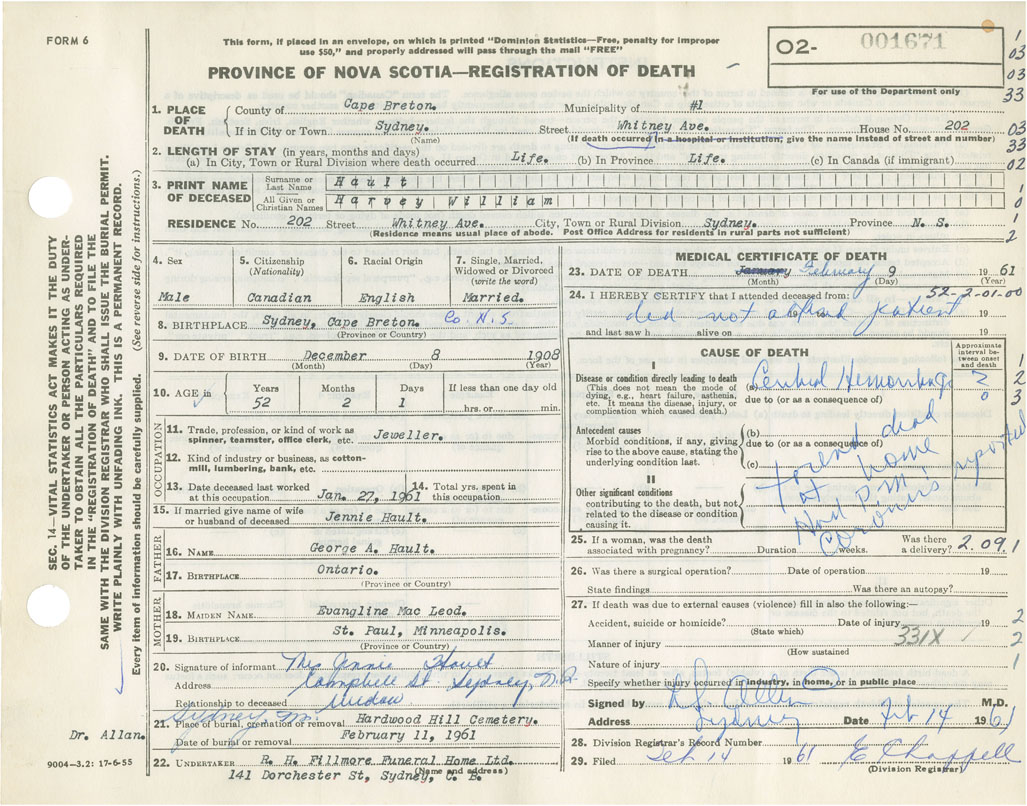 FORM 6
This form, if placed in an envelope, on which is printed "Dominion Statistics—Free, penalty for improper
use $50," and properly addressed will pass through the mail "FREE"
PROVINCE OF NOVA SCOTIA—REGISTRATION OF DEATH
O2- 001671
For use of the Department only
1. PLACE OF DEATH
County of Cape Breton. Municipality of #1
If in City or Town Sydney. Street Whitney Ave. House No. 202
(Name) (If death occurred in a hospital or institution, give the name instead of street and number)
2. LENGTH OF STAY (in years, months and days)
(a) In City, Town or Rural Division where death occurred Life. (b) In Province Life. (c) In Canada (if immigrant)
3. PRINT NAME OF DECEASED
Surname or Last Name Hault
All Given or Christian Names Harvey William
RESIDENCE No. 202 Street Whitney Ave. City, Town or Rural Division Sydney. Province N. S.
(Residence means usual place of abode. Post Office Address for residents in rural parts not sufficient)
4. Sex
Male
5. Citizenship
(Nationality)
Canadian
6. Racial Origin
English
7. Single, Married,
Widowed or Divorced
(write the word)
Married.
8. BIRTHPLACE Sydney, Cape Breton. Co. N.S
(Province or Country)
9. DATE OF BIRTH December 8 1908
(Month) (Day) (Year)
10. AGE in
Years Months Days If less than one day old
52 2 1 hrs. or min.
OCCUPATION
11. Trade, profession, or kind of work as
spinner, teamster, office clerk, etc. Jeweller.
12. Kind of industry or business, as cotton-
mill, lumbering, bank, etc.
13. Date deceased last worked
at this occupation Jan. 27, 1961
14. Total yrs. spent in
this occupation
15. If married give name of wife
or husband of deceased Jennie Hault.
FATHER
16. NAME George A. Hault.
17. BIRTHPLACE Ontario.
(Province or Country)
MOTHER
18. MAIDEN NAME Evangline Mac Leod.
19. BIRTHPLACE St. Paul, Minneapolis.
(Province or Country)
20. Signature of informant Mrs Annie Hault
Address Campbell St. Sydney, N.S.
Relationship to deceased widow
Sydney
21. Place of burial, cremation or removal Hardwood Hill Cemetery.
Date of burial or removal February 11, 1961
22. UNDERTAKER R. H. Fillmore Funeral Home Ltd.
141 Dorchester St, Sydney, C. B.
(Name and address)
MEDICAL CERTIFICATE OF DEATH
23. DATE OF DEATH January February 9 1961
(Month) (Day) (Year)
52-2-01-00
24. I HEREBY CERTIFY that I attended deceased from 19
did not attend patient
and last saw h alive on 19
CAUSE OF DEATH
Approximate
interval be-
tween onset
and death
I
Disease or condition directly leading to death
(This does not mean the mode of
dying, e.g., heart failure, asthenia,
etc. It means the disease, injury, or
complication which caused death.)
(a) Cerebral Hemorrhage ?
due to (or as a consequence of)
Antecedent causes
Morbid conditions, if any, giving
rise to the above cause, stating the
underlying condition last.
(b)
due to (or as a consequence of)
(c)
Found dead
at home
Had P.M. reported
Coroners
II
Other significant conditions
contributing to the death, but not
related to the disease or condition
causing it.
25. If a woman, was the death
associated with pregnancy? Duration weeks. Was there
a delivery? 2.09.1
26. Was there a surgical operation? Date of operation 19
State findings Was there an autopsy?
27. If death was due to external causes (violence) fill in also the following:—
Accident, suicide or homicide? Date of injury 19
(State which)
331X
Manner of injury
(How sustained
Nature of injury
Specify whether injury occurred in industry, in home, or in public place
Signed by Allan M.D.
Address Sydney Date Feb 14 1961
28. Division Registrar's Record Number
29. Filed Feb 14 1961 E Chappell
(Division Registrar)
SEC. 14—VITAL STATISTICS ACT MAKES IT THE DUTY
OF THE UNDERTAKER OR PERSON ACTING AS UNDER-
TAKER TO OBTAIN ALL THE PARTICULARS REQUIRED
IN THE "REGISTRATION OF DEATH" AND TO FILE THE
SAME WITH THE DIVISION REGISTRAR WHO SHALL ISSUE THE BURIAL PERMIT.
WRITE PLAINLY WITH UNFADING INK. THIS IS A PERMANENT RECORD.
Every item of information should be carefully supplied. (See reverse side for instructions.)
Dr. Allan.
9004-3.2: 17-6-55
1
03
03
33
03
33
02
1
0
1
2
1
2
0
3
2
2
1